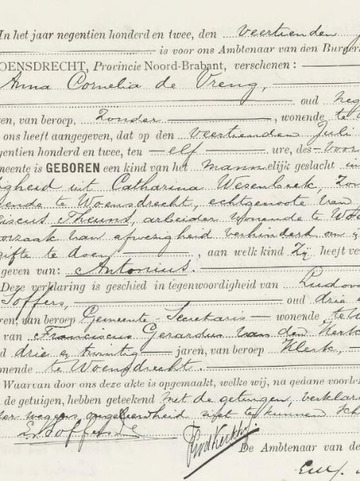 In het jaar negentien honderd en twee, den veertienden
is voor ons Ambtenaar van den Burger
OENSDRECHT, Provincie Noord-Brabant, verschenen:
Anna Cornelia de Vreng,
oud neg
ren, van beroep, zonder, wonende te
ons heeft aangegeven, dat op den veertienden Juli
gentien honderd en twee, ten elf ure, des voor
meente is GEBOREN een kind van het mannelijk geslacht in
uit Catharina Wesenbeek, zon
ende te Woensdrecht, echtgenoote van
iscus Theuns, arbeider wonende te Woe
oorzaak van afwezigheid verhinderd om
gifte te doen, aan welk kind zij heeft ve
geven van: Antonius.
Deze verklaring is geschied in tegenwoordigheid van Ludov
Soffers, oud drie
ren, van beroep Gemeente-Secretaris wonende te
van Franciscus Gerardus van den Kerk
d drie en twintig jaren, van beroep Klerk,
onende te Woensdrecht.
Waarvan door ons deze akte is opgemaakt, welke wij, na gedane voorl
de getuigen, hebben geteekend met de getuigen, verklar
wegens ongeleerdheid niet te kunnen sch
De Ambtenaar van de